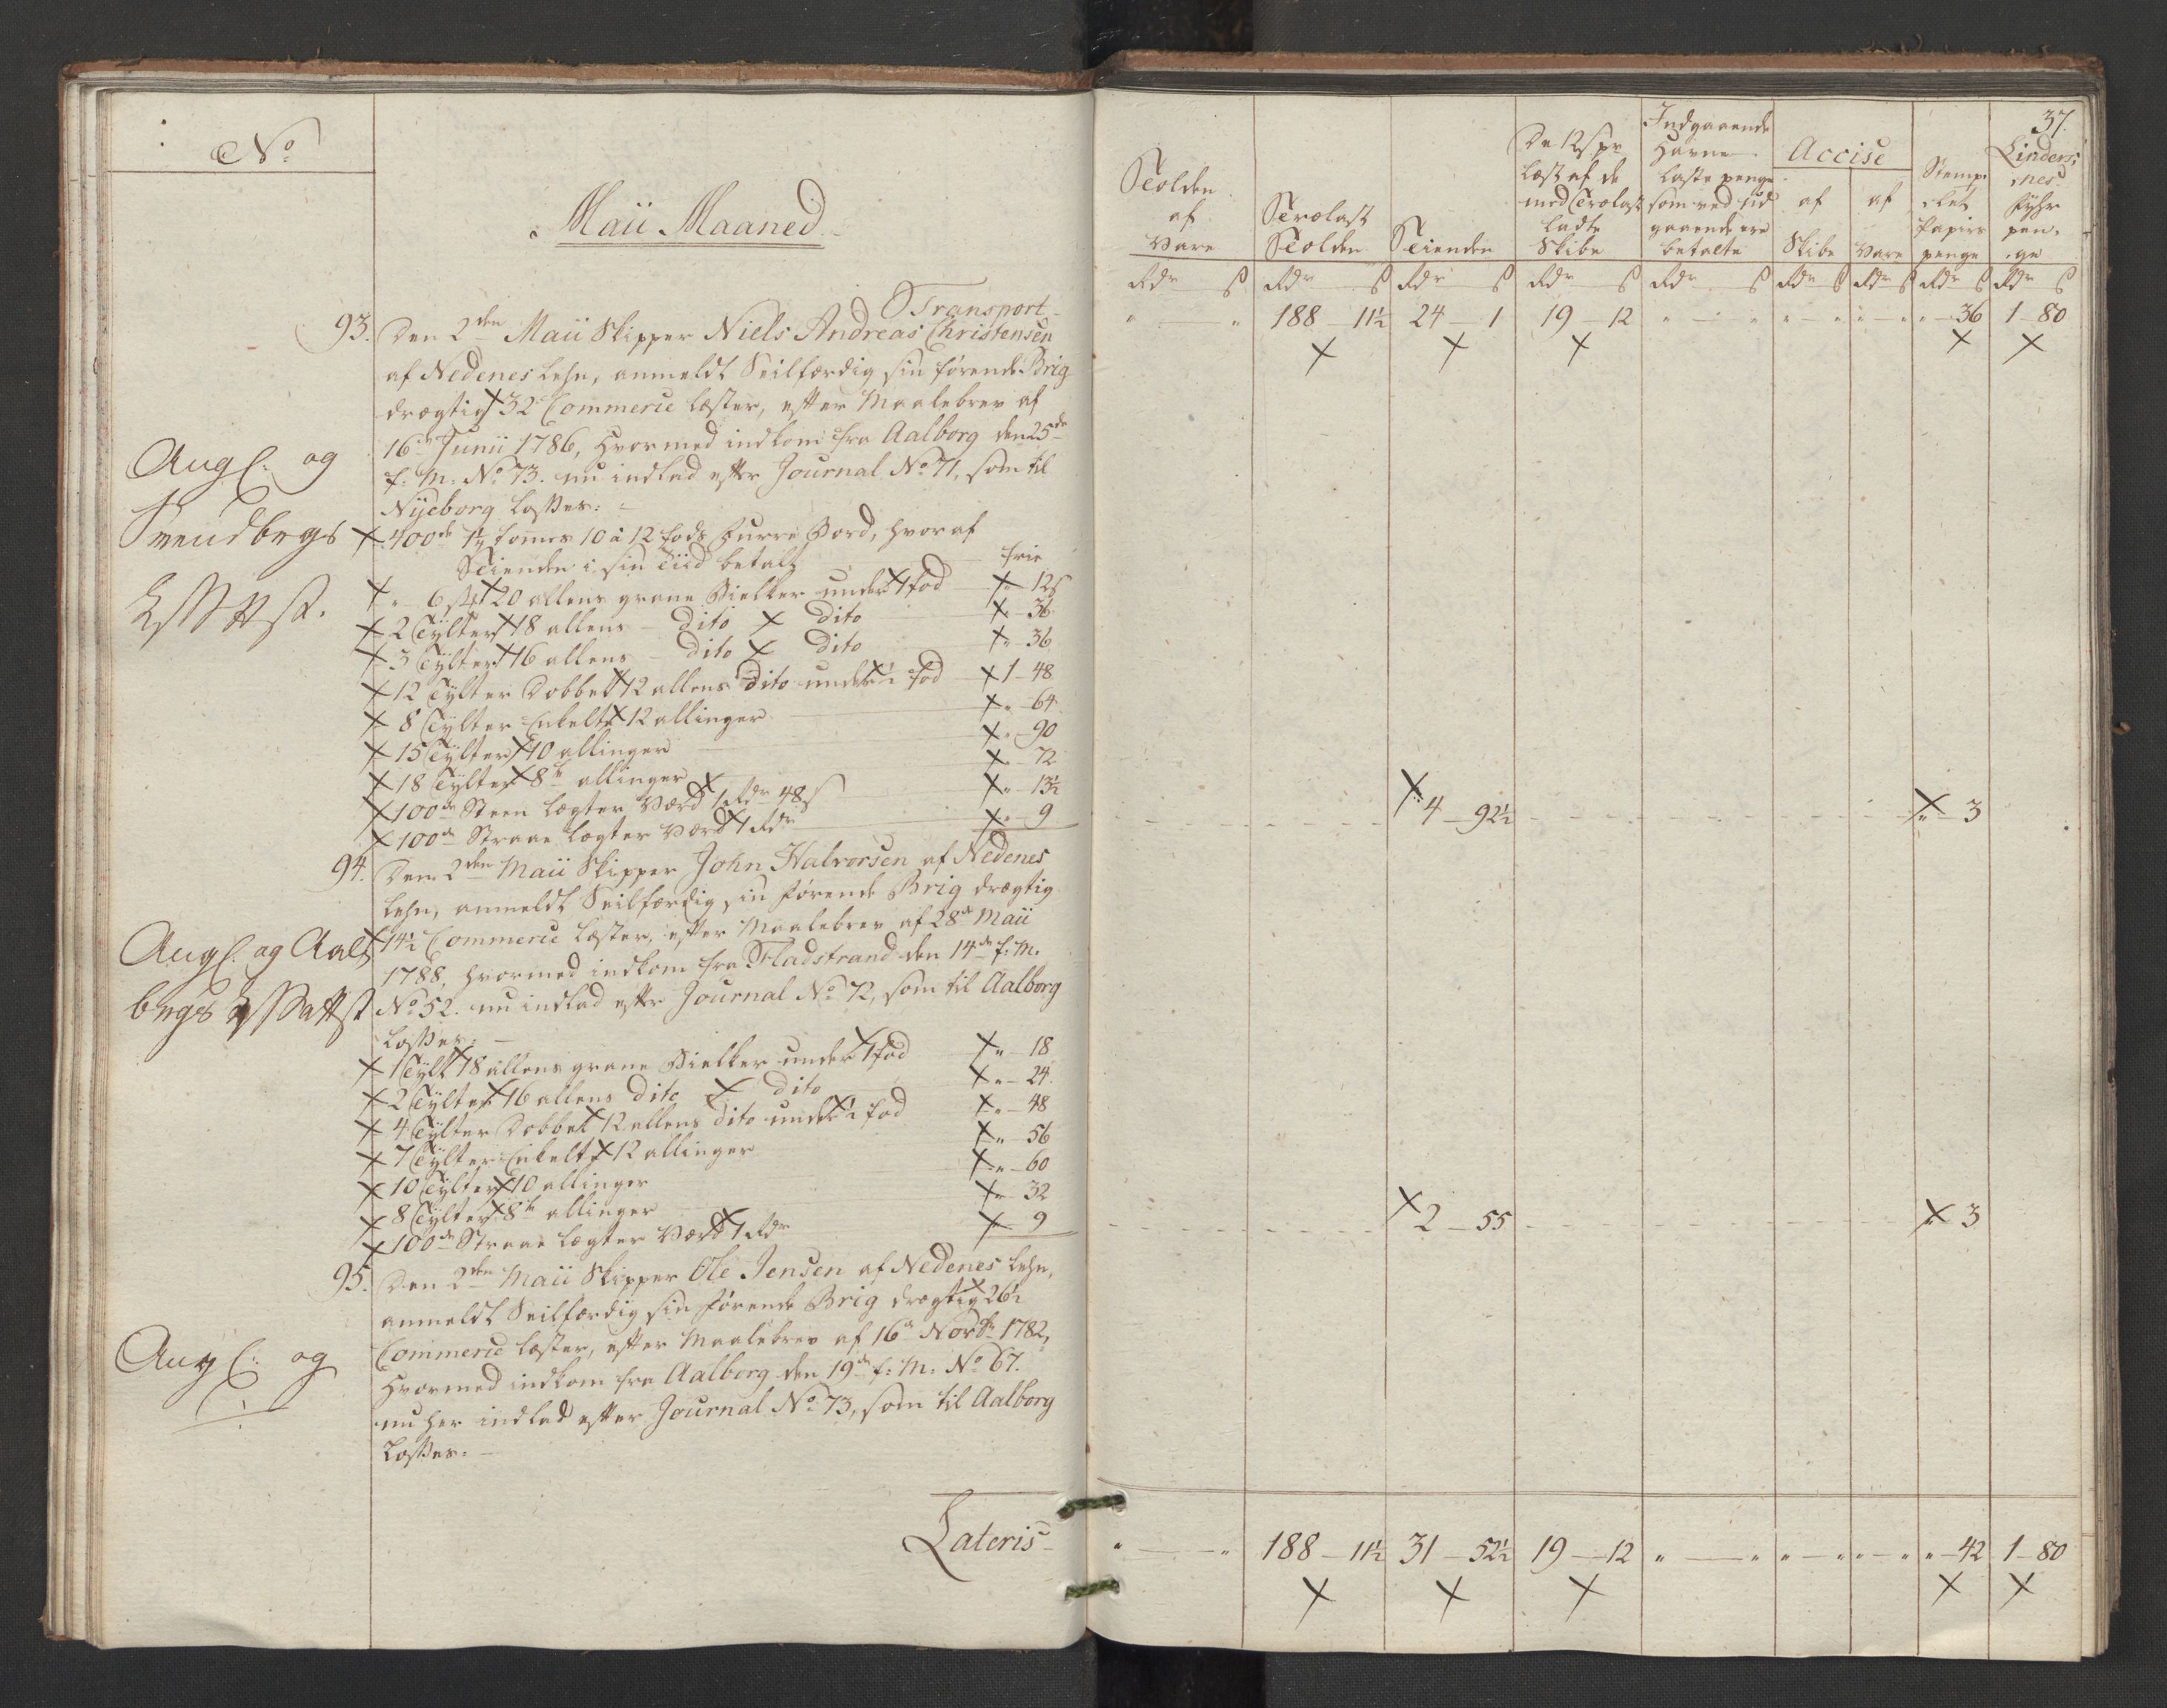 No
Maii Maaned
Transport
93. Den 2den Maii Skipper Niels Andreas Christensen
af Nedenes Lehn, anmeldt Seilfærdig sin førende Brig
drægtig 32 Commerce læster, efter Maalebrev af
16de Junii 1786, hvormed indkom fra Aalborg den 25de
f: M: No 73. nu indlad efter Journal No 71, som til
Nyeborg losses:
Ang C: og
Svendborgs
400de 1½ tommes 10 à 12 fods Furre Bord, hvoraf
Tienden i sin tiid betalt frie
" 6 st 20 allens grane Bielker under 1 fod " 12 s
2 Tylter 18 allens dito dito " 36
3 Tylter 16 allens dito dito " 36
12 Tylter Dobbelt 12 allens dito under ½ fod 1 48
8 Tylter Enkelt 12 allinger " 64
15 Tylter 10 allinger " 90
18 Tylter 8te allinger " 72
100de Steen lægter værd 1 Rdr 48 s " 13½
100de Straae lægter værd 1 Rdr " 9
94. Den 2den Maii Skipper John Halvorsen af Nedenes
Lehn, anmeldt Seilfærdig sin førende Brig drægtig
14½ Commerce læster, efter Maalebrev af 28de Maii
1788, hvormed indkom fra Fladstrand den 14de f: M.
No 52. nu indlad efter Journal No 72, som til Aalborg
losses:
Ang C. og Aal
borgs
1 Tylt 18 allens grane Bielker under 1 fod " 18
2 Tylter 16 allens dito dito " 24
4 Tylter Dobbelt 12 allens dito under ½ fod " 48
7 Tylter Enkelt 12 allinger " 56
10 Tylter 10 allinger " 60
8 Tylter 8te allinger " 32
100de Straae lægter værd 1 Rdr " 9
95. Den 2den Maii Skipper Ole Jensen af Nedenes Lehn,
anmeldt Seilfærdig sin førende Brig drægtig 26½
Commerce læster, efter Maalebrev af 16de Novbr 1782,
hvormed indkom fra Aalborg den 19de f: M: No 67.
nu her indlad efter Journal No 73, som til Aalborg
losses:
Ang C: og
Lateris
37.
Tolden af Vare
Trælast Tolden
Tienden
De 12 s pr læst af de med Trælast ladte Skibe
Indgaaende Havne laste penge som ved ud gaaende ere betalte
Accise
af Skibe
af Vare
Stemp let Papiirs penge
Linders nes Fyhr pen ge
Rdr s Rdr s Rdr s Rdr s Rdr s Rdr s Rdr s Rdr s Rdr s
" " 188 11½ 24 1 19 12 " " " " " " " 36 1 80
4 92½ " 3
2 55 " 3
" " 188 11½ 31 52½ 19 12 " " " " " " " 42 1 80